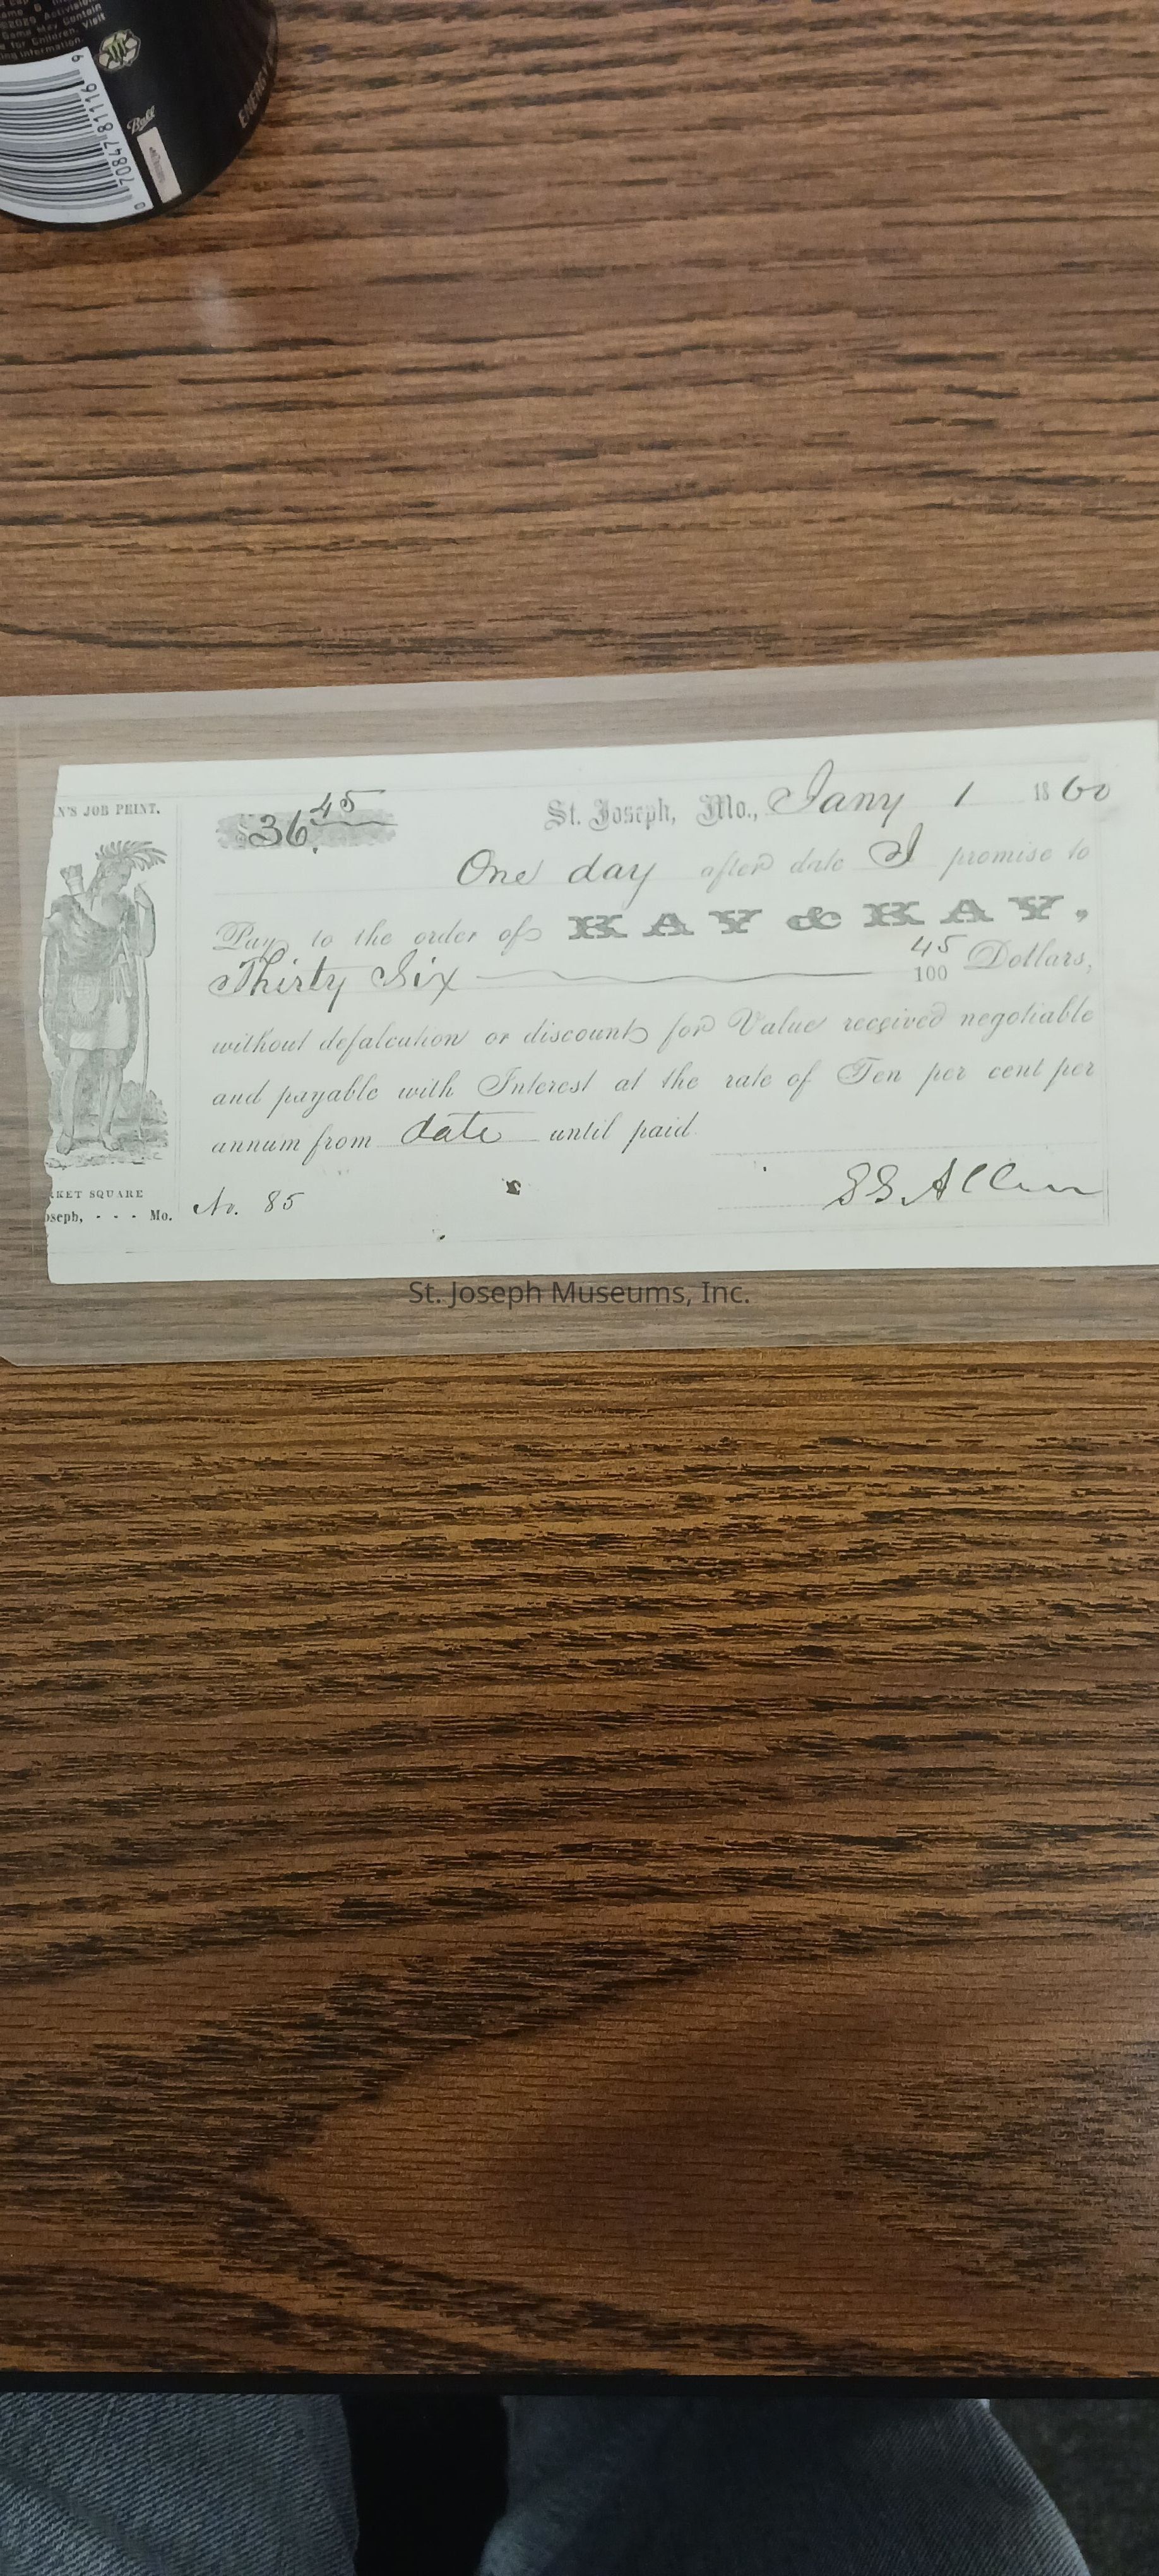 Game May Contain
for Children. Visit
ing information.
0 70847 81116 9
Ball
ENERGY
N'S JOB PRINT.
$36.45
St. Joseph, Mo., Jany 1 1860
One day after date I promise to
Pay to the order of KAY & KAY,
Thirty Six 45/100 Dollars,
without defalcation or discount for Value received negotiable
and payable with Interest at the rate of Ten per cent per
annum from date until paid
KET SQUARE
oseph, - - - Mo.
No. 85
SS Allen
St. Joseph Museums, Inc.